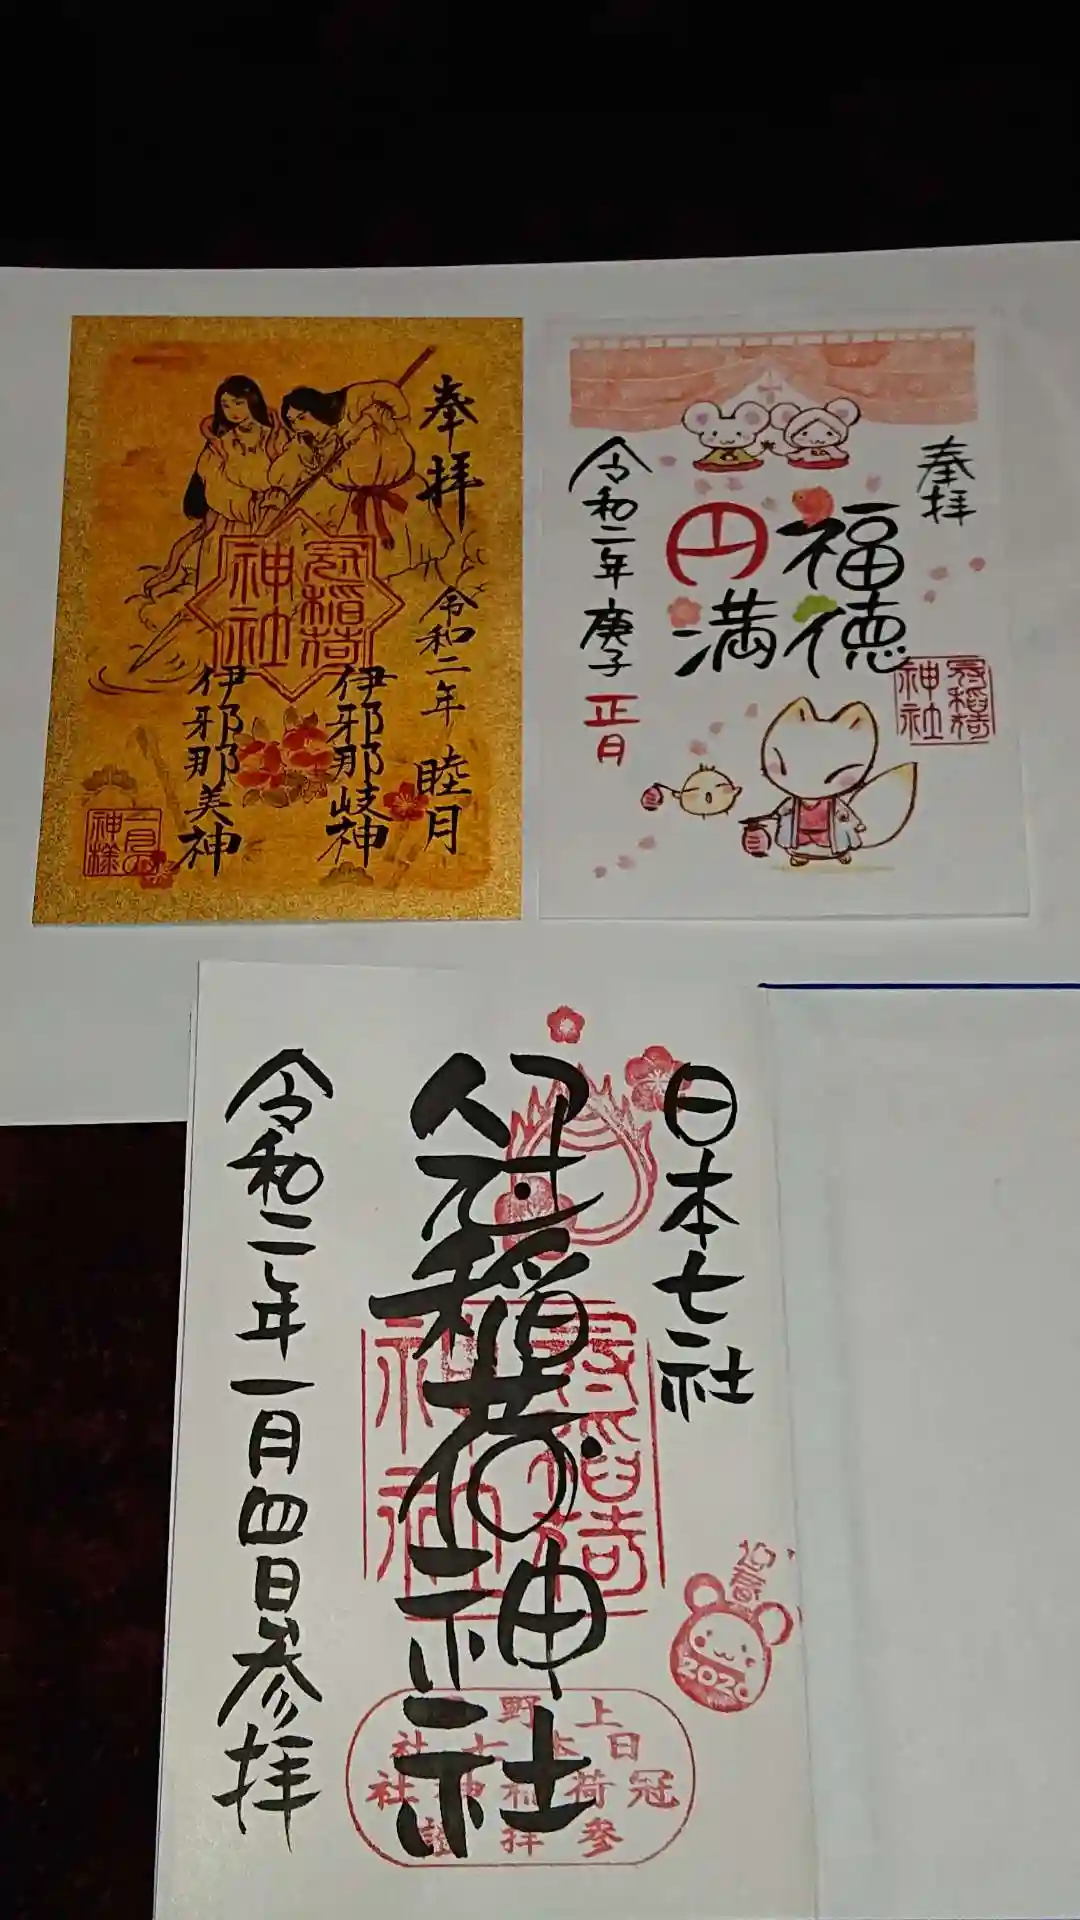 奉拝
令和二年 睦月
冠稲荷
神社
伊邪那岐神
伊邪那美神
一月の
神様
奉拝
福徳
円満
冠稲荷
神社
令和二年 庚子 正月
日本七社
冠稲荷神社
冠稲荷
神社
令和二年一月四日参拝
迎春
2020
上野
日本七社
冠稲荷神社
參拝證